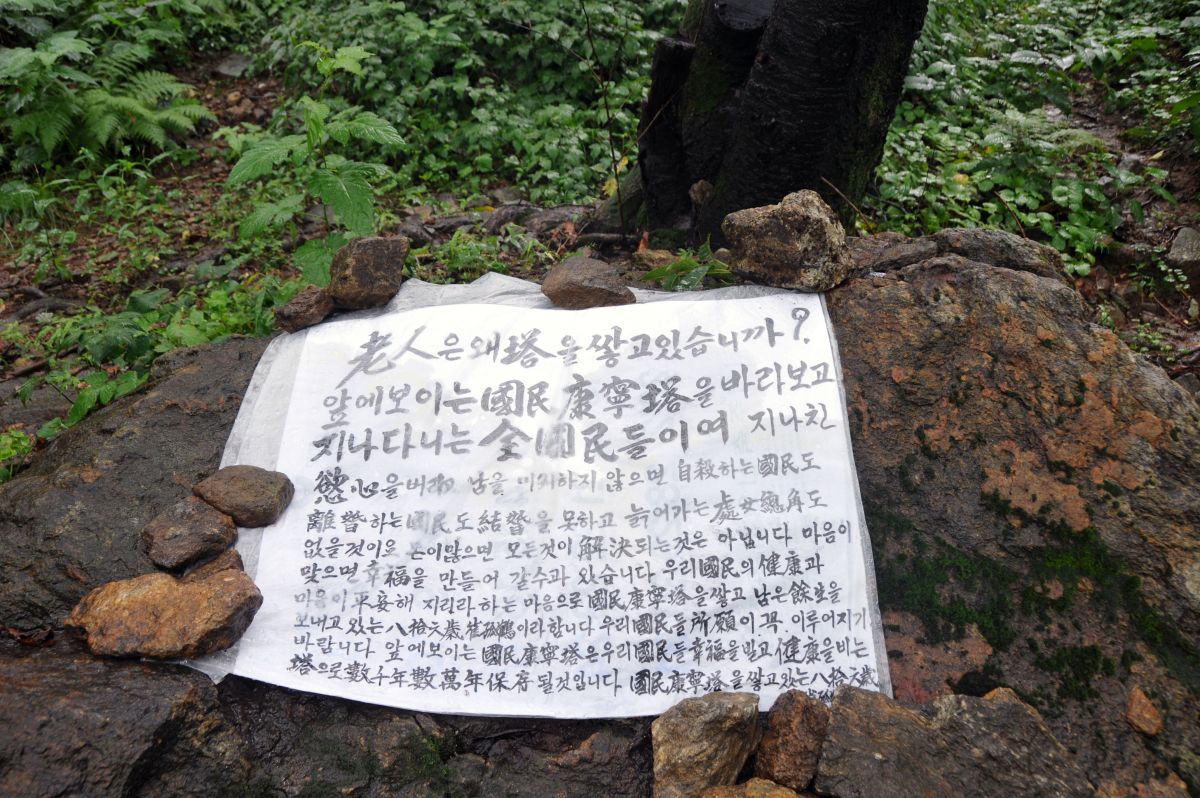 老人은왜塔을쌓고있습니까?
앞에보이는國民康寧塔을바라보고
지나다니는全國民들이여 지나친
慾心을버리고 남을 미워하지 않으면 自殺하는國民도
離婚하는國民도結婚을못하고 늙어가는處女總角도
없을것이요 돈이많으면 모든것이解決되는것은 아닙니다 마음이
맞으면幸福을 만들어 갈수가 있습니다 우리國民의健康과
마음이平安해 지리라하는 마음으로國民康寧塔을쌓고 남은餘生을
보내고있는八拾六歲崔孤鶴이라합니다 우리國民들所願이꼭 이루어지기
바랍니다 앞에보이는國民康寧塔은우리國民들幸福을빌고健康을비는
塔으로數千年數萬年保存될것입니다 國民康寧塔을쌓고있는八拾六歲